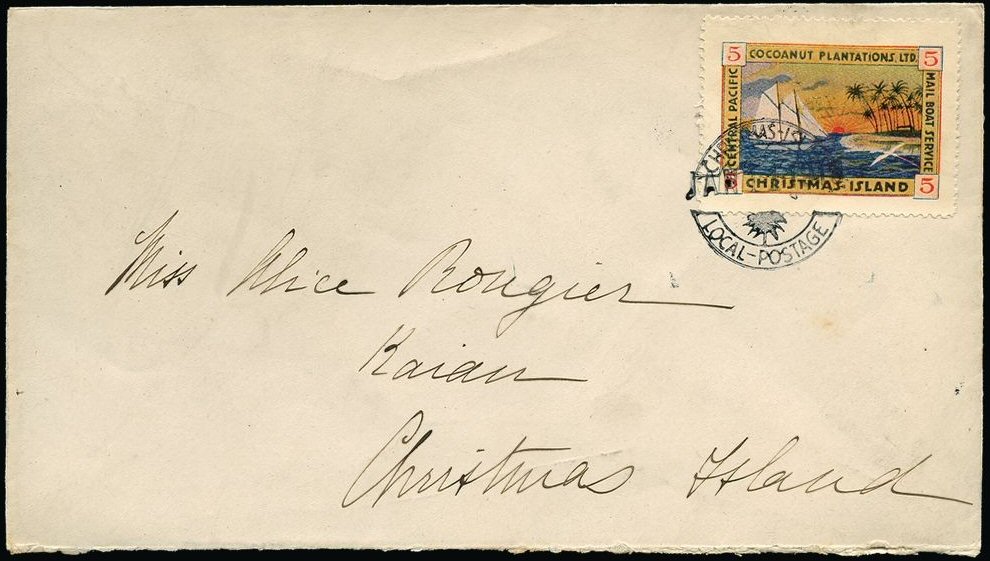 5 COCOANUT PLANTATIONS, LTD. 5
CENTRAL PACIFIC
MAIL BOAT SERVICE
CHRISTMAS ISLAND 5
LOCAL-POSTAGE
Miss Alice Rougier
Kaian
Christmas Island